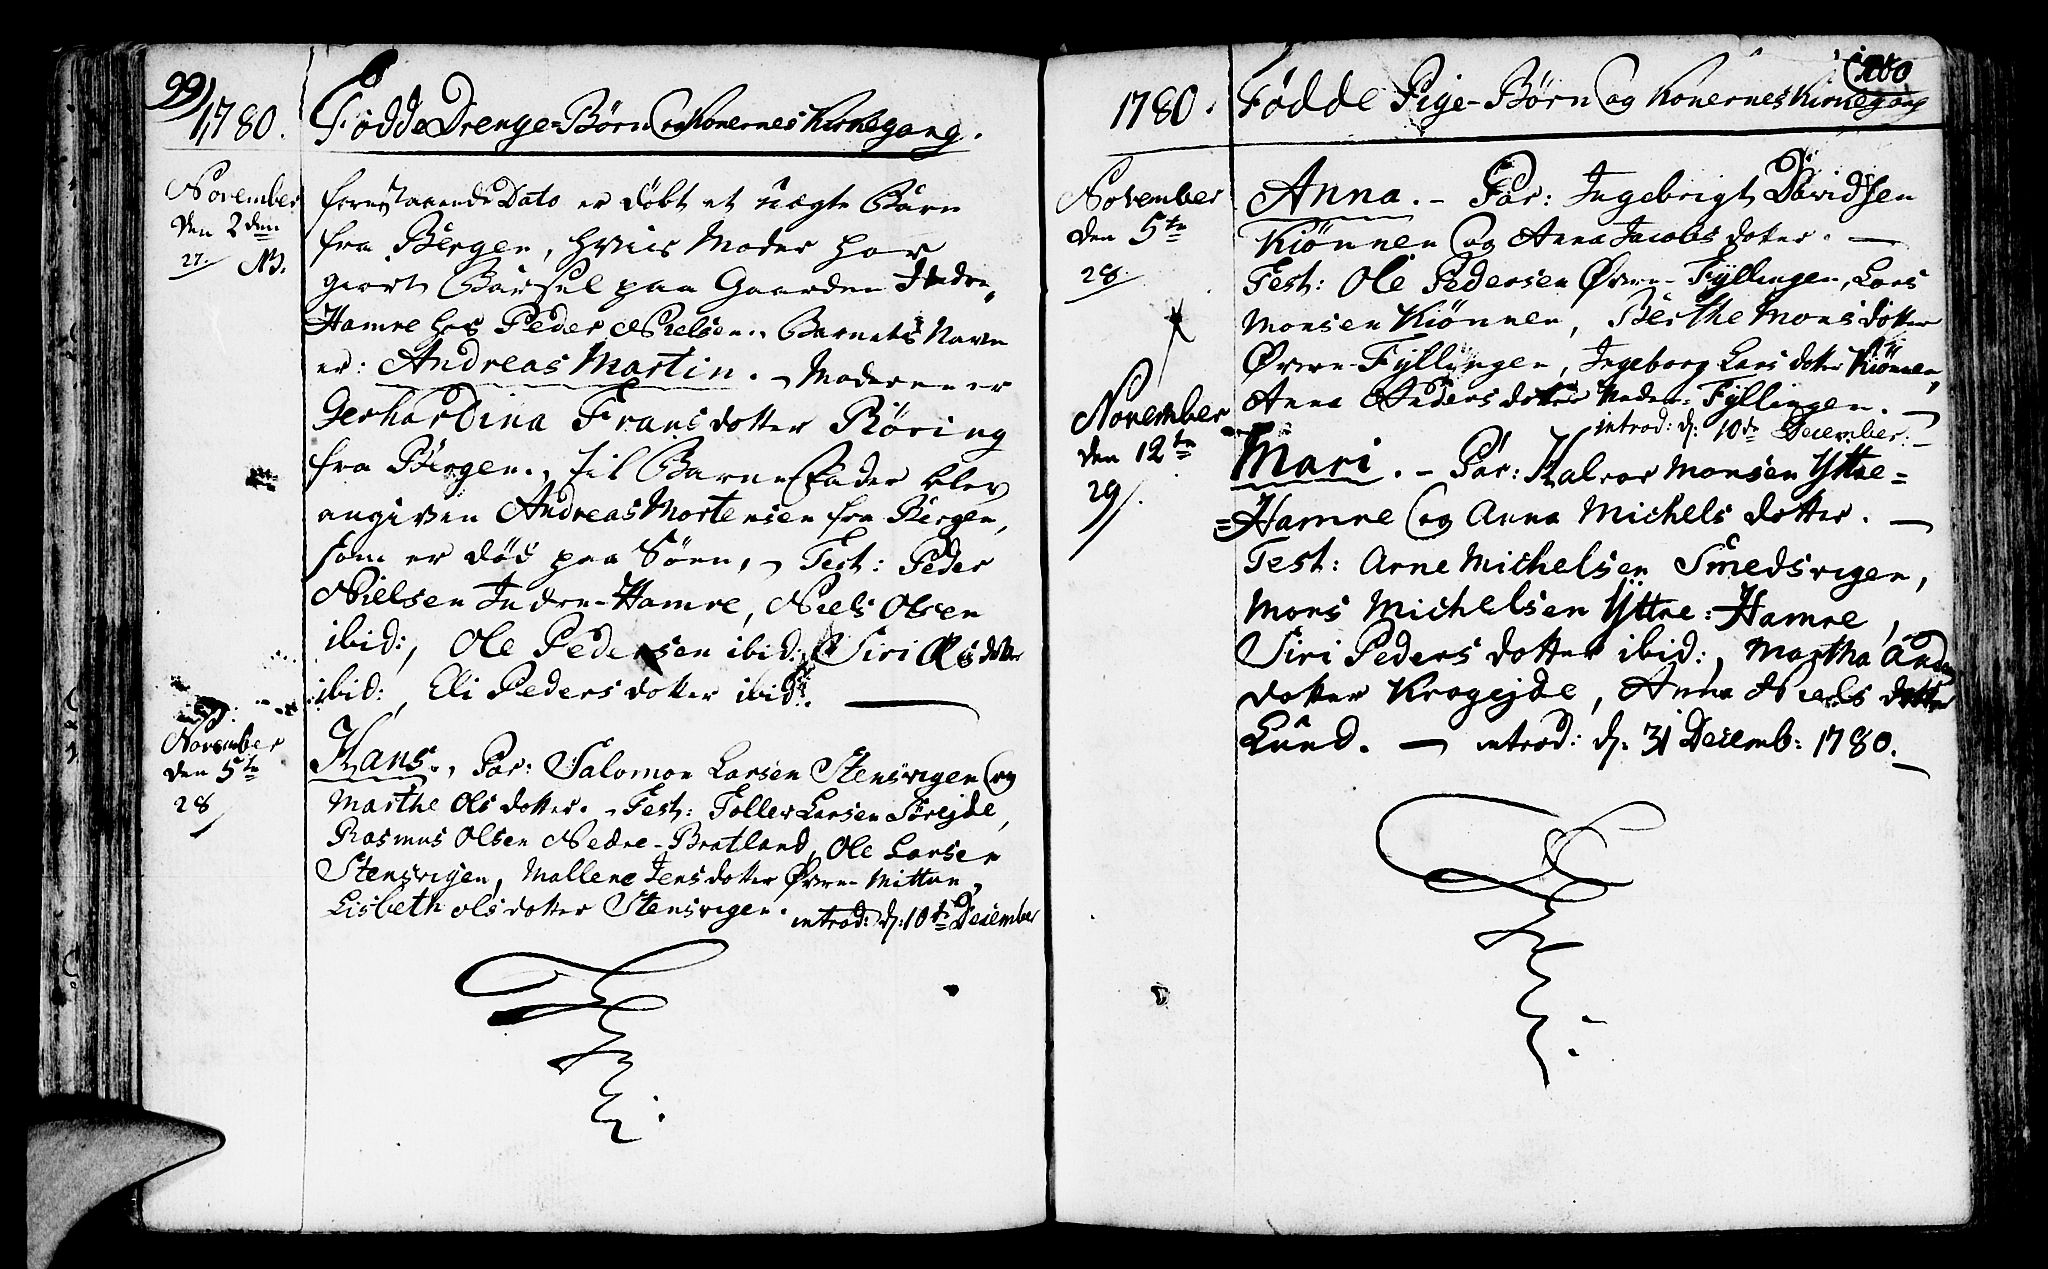 99)
1780. Fødde Drenge-Børn og Konernes Kirkegang.
November
den 2den
27. NB.
fornstaaende Dato er døbt et uægte Barn
fra Bergen, hvis Moder har
giort Barsel paa Gaarden Indre-
Hamre hos Peder Nielsen. Barnets Navn
er: Andreas Martin. - Moderen er
Gerhardina Frans dotter Röring
fra Bergen., til Barne Fader blev
angiven Andreas Mortensen fra Bergen,
som er død paa Søen, - Test: Peder
Nielsen Indre-Hamre, Niels Olsen
ibid:, Ole Pedersen ibid:, Siri Ols dotter
ibid:, Eli Peders dotter ibid:.
November
den 5te
28
Hans., Par: Salomon Larsen Stensvigen og
Marthe Ols dotter. - Test: Toller Larsen
Rasmus Olsen Nedre-Bratland, Ole Larsen
Stensvigen, Mallene Jens dotter Øvre-Mittun,
Lisbeth Ols dotter Stensvigen. introd: d: 10de December
100
1780. Fødde Pige-Børn og Konernes Kirkegang
November
den 5te
28.
Anna. - Par: Ingebrigt Davidsen
Kiönnen og Anna Jacobs dotter. -
Test: Ole Pedersen Øvre-Fyllingen, Lars
Monsen Kiönnen, Berthe Mons dotter
Øvre-Fyllingen, Ingeborg Lars dotter Kiönnen,
Anna Anders dotter Neder-Fyllingen. -
introd: d: 10de December. -
November
den 12te
29.
Mari. - Par: Halvor Monsen Yttre=
=Hamre og Anna Michels dotter. -
Test: Arne Michelsen Smedsvigen,
Mons Michelsen Yttre-Hamre,
Siri Peders dotter ibid:, Martha Anders
dotter Kragejde, Anna Niels dotter
Lund. - introd: d: 31 Decemb: 1780. -